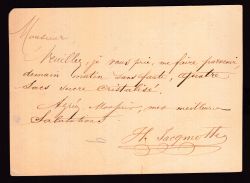 Monsieur
Veuillez, je vous prie, me faire parvenir
demain matin sans faute, quatre
sacs sucre cristallisé.
Agréez Monsieur, mes meilleures
Salutations
Th Jacqmotte